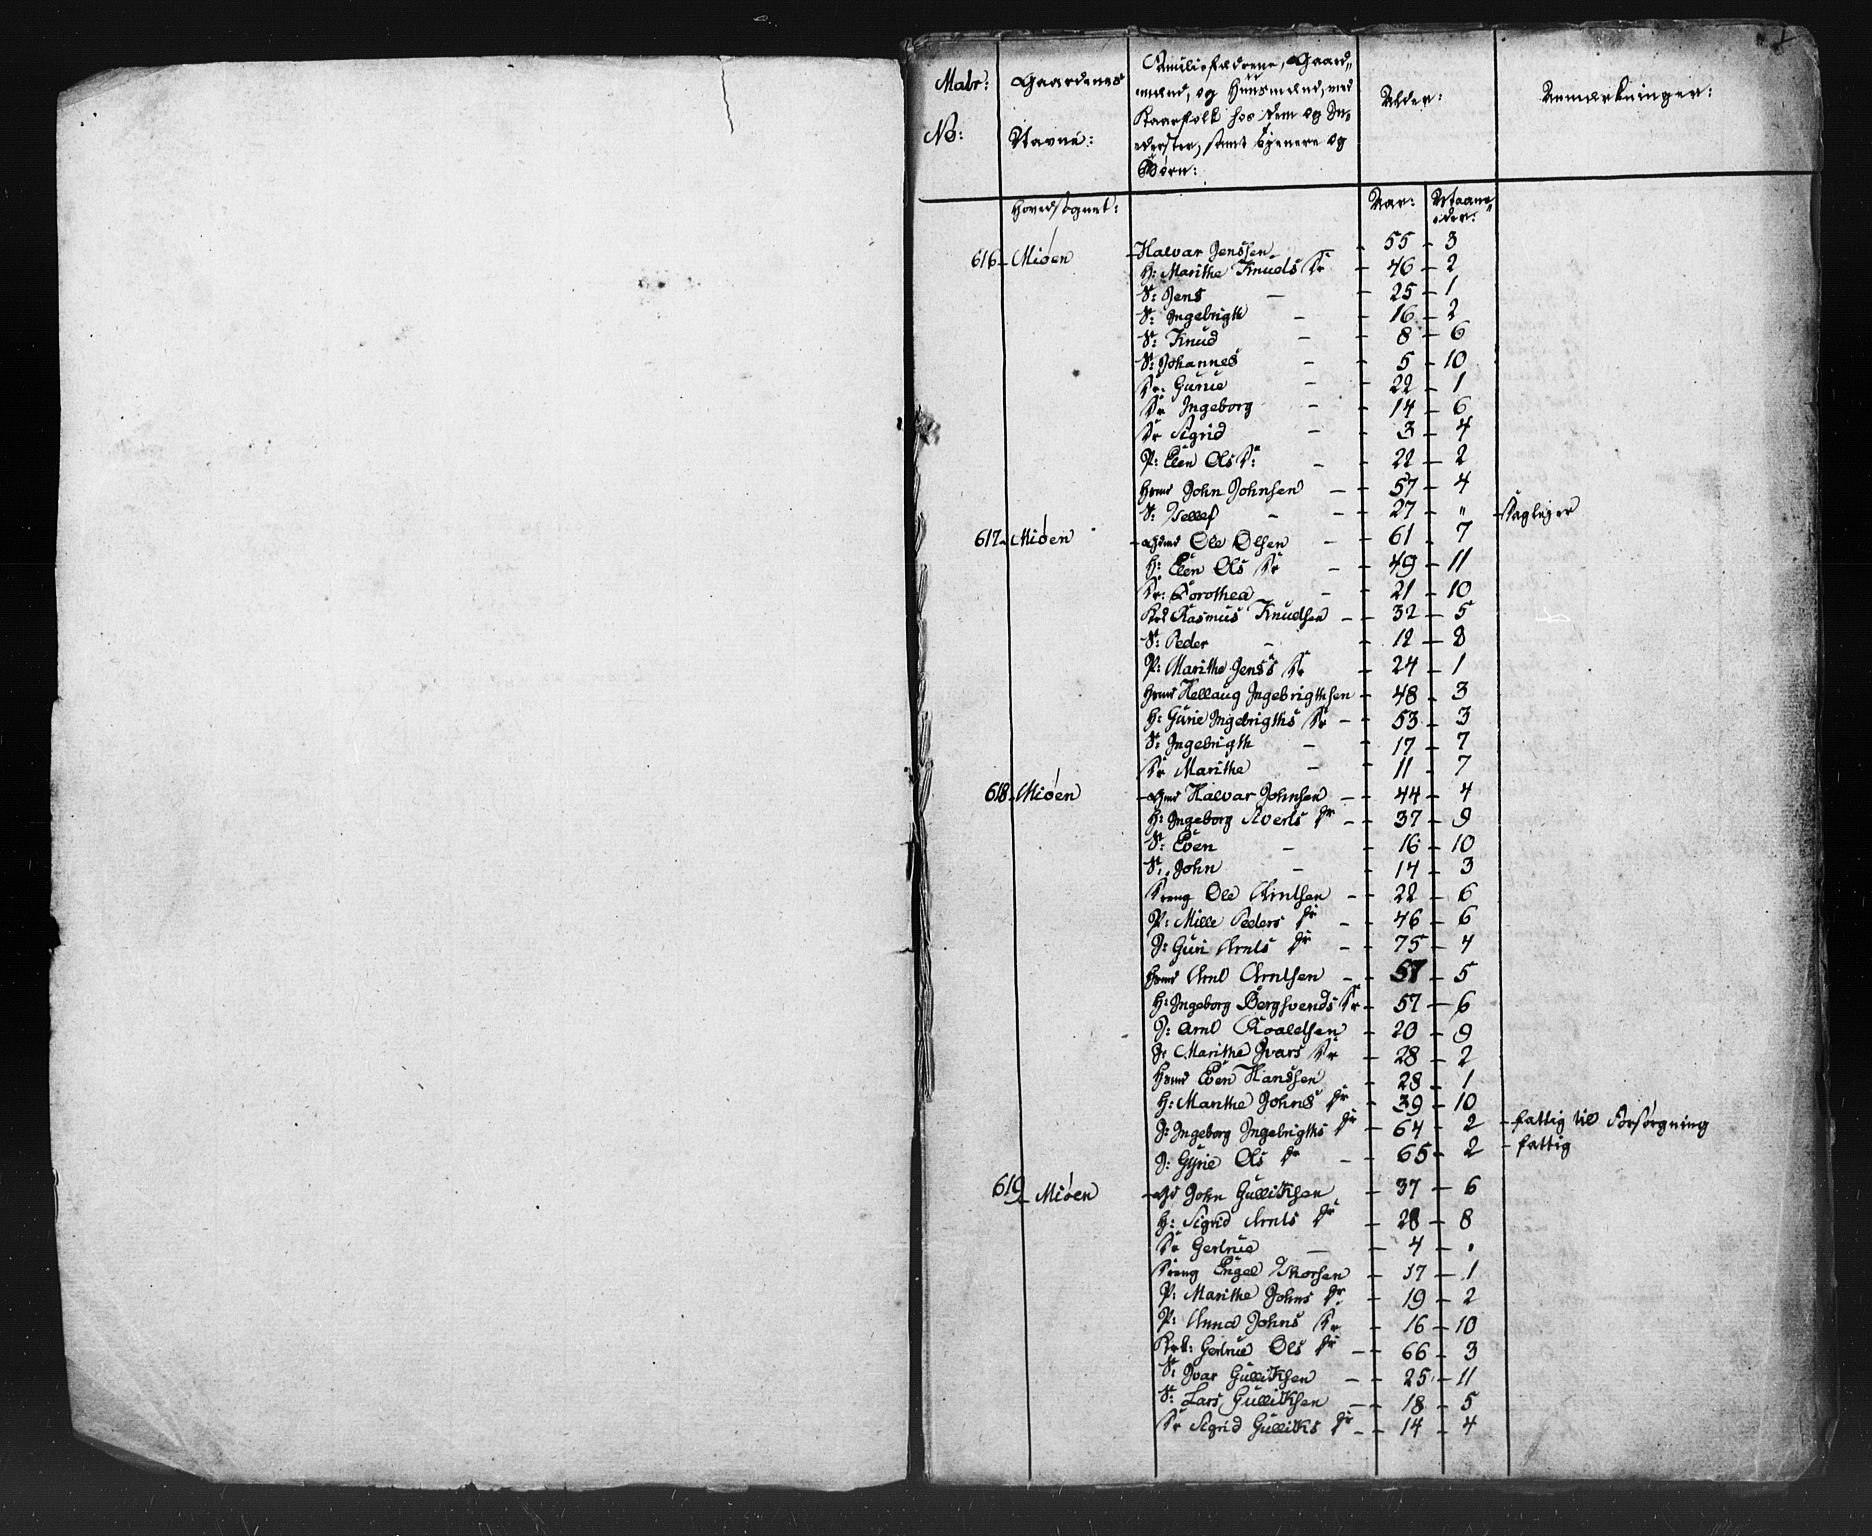 Matr: No:
Gaardenes Navne:
Familiefædrene, Gaard-
mænd, og Huusmænd, med
Kaarfolk hos dem og In-
derster, samt Tjenere og
Børn:
Alder:
Anmærkninger:
Hovedsognet: Aar: Maane-
eder:
616 - Miøen - Halvar Jenssen - 55 - 3
H: Marithe Knuds Dr - 46 - 2
S: Jens - - 25 - 1
S: Ingebrigth - - 16 - 2
S: Knud - - 8 - 6
S: Johannes - - 5 - 10
Dr: Gurue - - 22 - 1
Dr Ingeborg - - 14 - 6
Dr Sigrid - - 3 - 4
P: Elen Ols Dr: - - 22 - 2
Hmd John Johnsen - - 57 - 4
S: - - 27 - " -
617 - Miøen - Gmd Ole Olsen - - 61 - 7
H: Elen Ols Dr - - 49 - 11
Dr: Dorothea - - 21 - 10
Rasmus Knudsen - - 32 - 5
S: Peder - - 12 - 8
P: Marithe Jens's Dr - 24 - 1
Hmd Hellaug Ingebrigthsen - 48 - 3
H: Gurie Ingebrigths Dr - - 53 - 3
S: Ingebrigth - - 17 - 7
Dr Marithe - - 11 - 7
618 - Miøen - Gmd Halvar Johnsen - - 44 - 4
H: Ingeborg Siverts Dr - - 37 - 9
S: Even - - 16 - 10
S: John - - 14 - 3
Dreng Ole Arntsen - - 22 - 6
P: Mille Peders Dr - - 46 - 6
I: Guri Arnts Dr - - 75 - 4
Hmd Arnt Arntsen - - 57 - 5
H: Ingeborg Bergsvends Dr - 57 - 6
I: Arnt Roaldsen - 20 - 9
I: Marithe Ivars Dr - 28 - 2
Hmd Even Hanssen - 28 - 1
H: Marithe Johns Dr - 39 - 10
I: Ingeborg Ingebrigths Dr - 64 - 2 - fattig til Forsørgning
I: Gurie Ols Dr - - 65 - 2 - fattig
619 - Miøen - Gd John Gulliksen - 37 - 6
H: Sigrid Arnts Dr - 28 - 8
Dr Gertrue - - 4 - .
Dreng Engel Thorsen - 17 - 1
P: Marithe Johns Dr - 19 - 2
P: Anna Johns Dr - 16 - 10
Gertrue Ols Dr - - 66 - 3
S: Ivar Gulliksen - - 25 - 11
S: Lars Gulliksen - - 18 - 5
Dr Sigrid Gulliks Dr - - 14 - 4